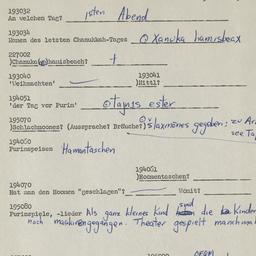 193032
An welchen Tag? 1sten Abend
193034
Numen des letzten Chanukkah-Tages @ Xanuka hamisbeax
227002
)Chanuka(e)hanisbeach? +
193040 193041
'Weihnachten' )Nittl?
194051
'der Tag vor Purin' @ta;nis ester
195070
)Schlachmones? (Aussprache? Bräuche?) šlaxmónes gegeben; zu
see
194060
Purimspeisen Hamantaschen
194061
)Homentaschen?
194070
Hat man den Hoomen "geschlagen"? Womit?
195080
Purimspiele, -lieder Als ganz kleines Kind sind die Kinder
noch maskiren gegangen. Theater gespielt manchmal